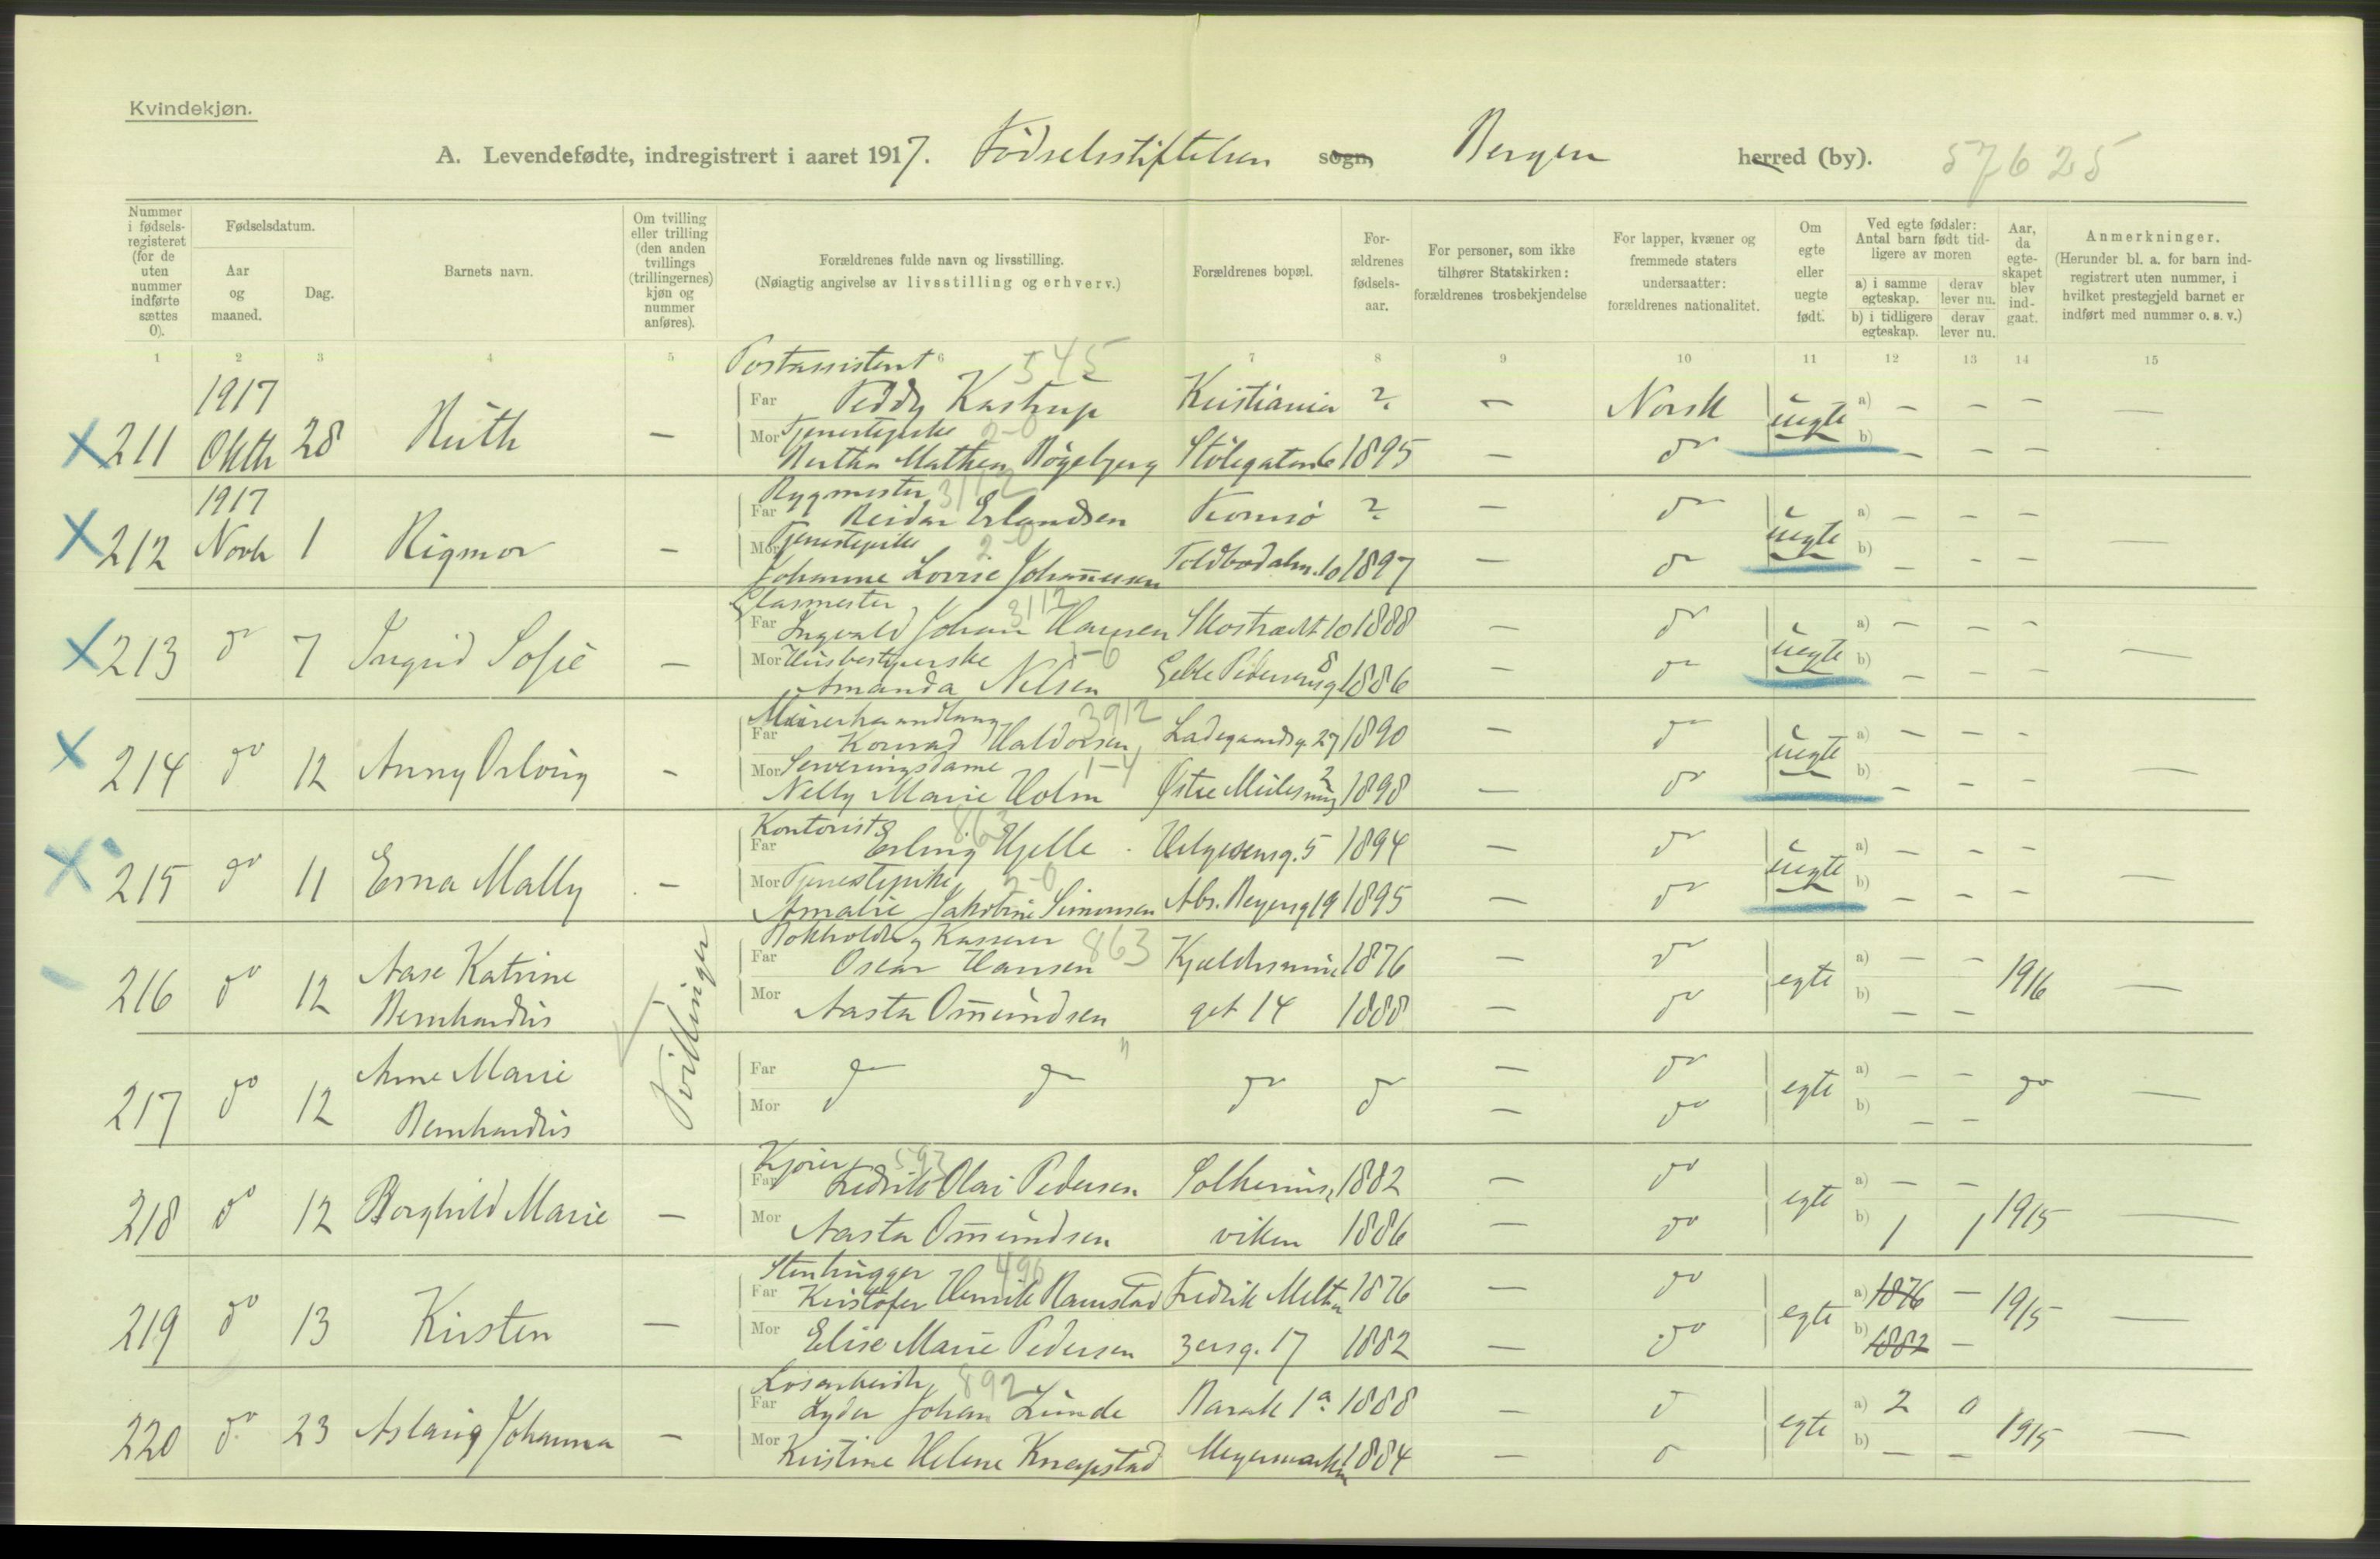 Kvindekjøn.
A. Levendefødte, indregistrert i aaret 1917. Fødselsstiftelsen sogn, Bergen herred (by). 57625
Nummer i fødselsregisteret (for de uten nummer indførte sættes 0).
Fødselsdatum.
Aar og maaned.
Dag.
Barnets navn.
Om tvilling eller trilling (den anden tvillings (trillingernes) kjøn og nummer anføres).
Forældrenes fulde navn og livsstilling.
(Nøiagtig angivelse av livsstilling og erhverv.)
Forældrenes bopæl.
Forældrenes fødselsaar.
For personer, som ikke tilhører Statskirken: forældrenes trosbekjendelse
For lapper, kvæner og fremmede staters undersaatter: forældrenes nationalitet.
Om egte eller uegte født.
Ved egte fødsler: Antal barn født tidligere av moren
a) i samme egteskap. derav lever nu.
b) i tidligere egteskap. derav lever nu.
Aar, da egteskapet blev indgaat.
Anmerkninger.
(Herunder bl. a. for barn indregistrert uten nummer, i hvilket prestegjeld barnet er indført med nummer o. s. v.)
1 2 3 4 5 6 7 8 9 10 11 12 13 14 15
Postassistent 545
1917 Far Teddy Kastrup Kristiania ? — Norsk uegte a) — — —
X 211 Oktb 28 Ruth — Mor Tjenestepike 2-0
Mathea Stölegaten 6 1895 — do b) — — —
1917 Rygmester 3112
Far Reidar Erlandsen Tromsö ? — do uegte a) — — —
X 212 Novb 1 Rigmor — Mor Tjenestepike 2-0
Johanne Lovise Johannesen Toldbodalm. 10 1897 — do b) — — —
Glasmester 3112
Far Ingvald Johan Hansen Skostrædt 10 1888 — do uegte a) — — —
X 213 do 7 Ingrid Sofie — Mor Husbestyrerske 1-6
Amanda Nilsen Geble Pedersensg 8 1886 — do b) — — —
3912
Far Konrad Haldorsen Ladegaardsg. 27 1890 — do uegte a) — — —
X 214 do 12 Anny Solveig — Mor Serveringsdame 1-4
Nelly Marie Holm Østre 2 1898 — do b) — — —
Kontorist 863
Far Erling Hjelle Helgesensg. 5 1894 — do uegte a) — — —
X 215 do 11 Erna Mally — Mor Tjenestepike 2-0
Amalie Jakobine Simonsen Abs. Beyersg 19 1895 — do b) — — —
Bokholder og Kasserer 863
Far Oscar Hansen 1876 — do egte a) — — 1916
216 do 12 Aase Katrine Bernhardus Tvillinger Mor Aasta Omundsen get 14 1888 — do b) — —
217 do 12 Anne Marie Bernhardus Far do do " do do — do egte a) — — do
Mor — do b) — —
Kjører 593
Far Fredrik Olai Pedersen Solheims 1882 — do egte a) — —
218 do 12 Borghild Marie — Mor Aasta Omundsen viken 1886 — do b) 1 1 1915
Stenhugger 496
Far Kristofer Henrik Ramstad Fredrik Melt 1876 — do egte a) 1876 — 1915
219 do 13 Kirsten — Mor Elise Marie Pedersen zersg. 17 1882 — do b) 1882 —
Løsarbeider 892
Far Lyder Johan Lunde Barak 1a 1888 — do egte a) 2 0 1915
220 do 23 Aslaug Johanna — Mor Kristine Helene Knapstad Meyermarken 1884 — do b) — —